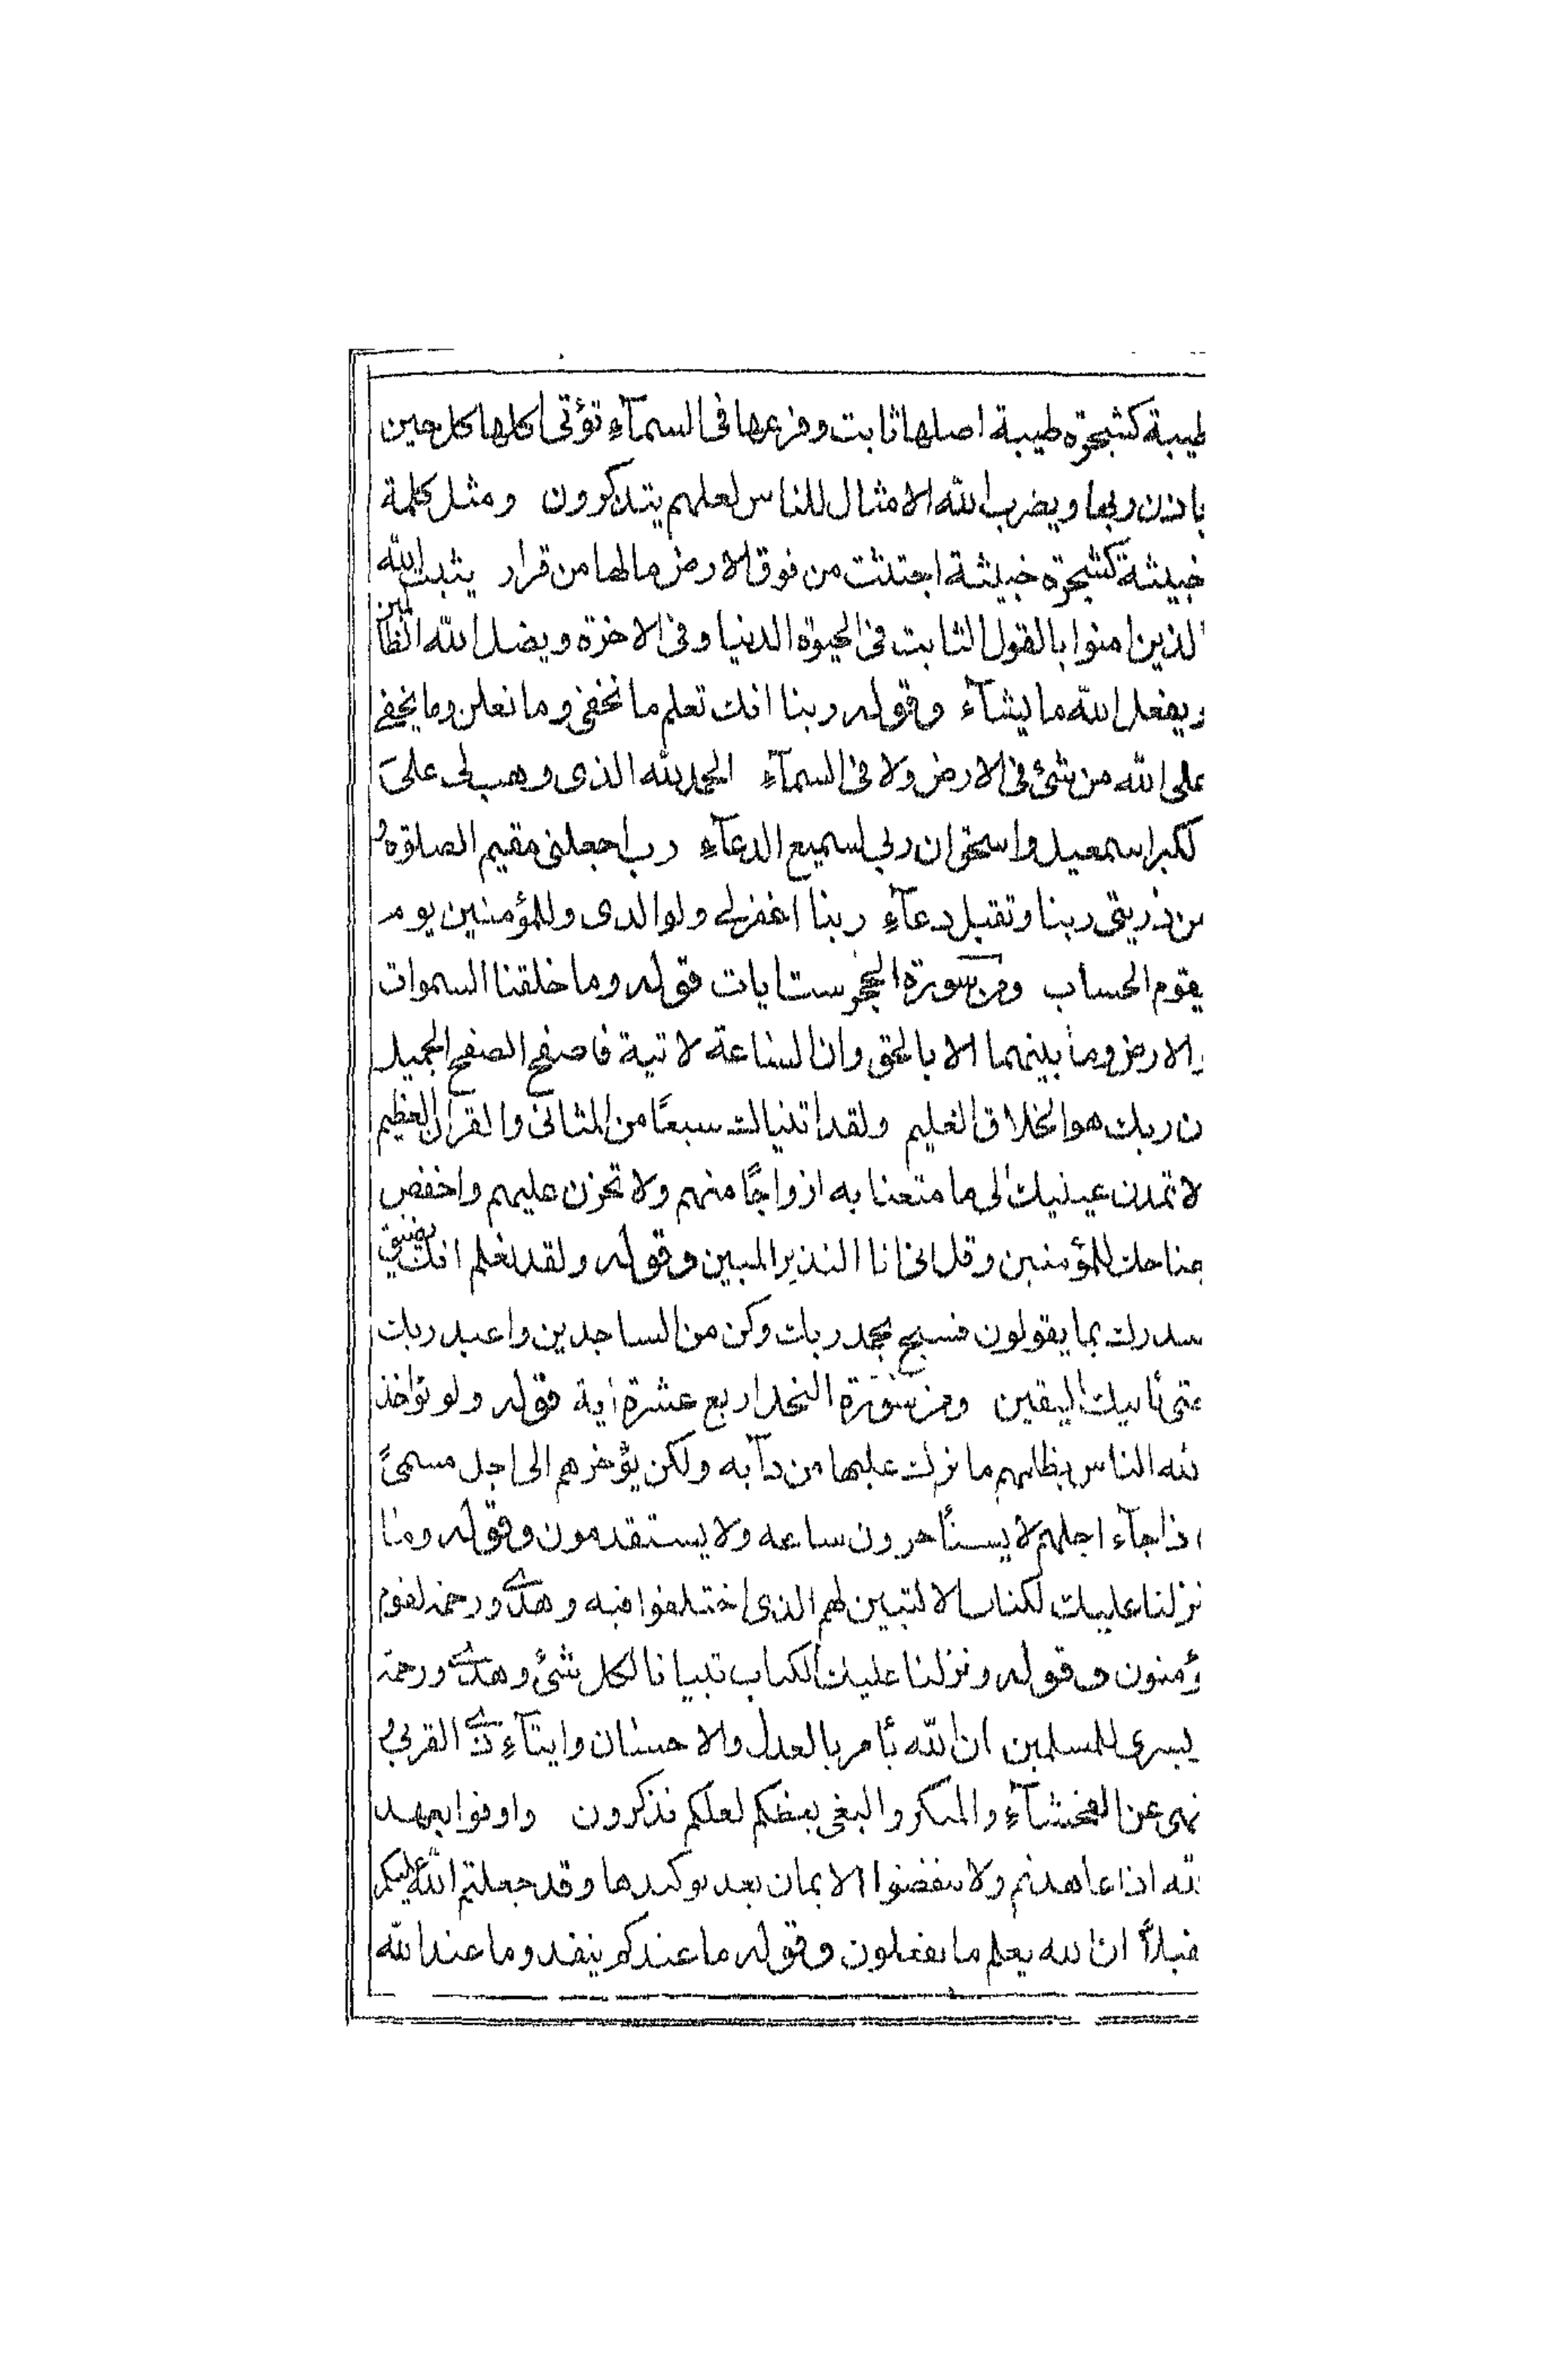 طيبة كشجرة طيبة اصلها ثابت وفرعها فى السمآء تؤتى اكلها كل حين
باذن ربها ويضرب الله الامثال للناس لعلهم يتذكرون ومثل كلمة
خبيثة كشجرة خبيثة اجتثت من فوق الارض مالها من قرار يثبت الله
الذين امنوا بالقول الثابت فى الحيوة الدنيا وفى الاخرة ويضل الله الظالمين
ويفعل الله ما يشآء وقوله ربنا انك تعلم ما نخفى وما نعلن وما يخفى
على الله من شئ فى الارض ولا فى السمآء الحمد لله الذى وهب لى على
لكبر اسمعيل واسحق ان ربى لسميع الدعآء رب اجعلنى مقيم الصلوة و
من ذريتى ربنا وتقبل دعآء ربنا اغفر لى ولوالدى وللمؤمنين يوم
يقوم الحساب ومن سورة الحجر ست ايات قوله وما خلقنا السموات
والارض وما بينهما الا بالحق وان الساعة لاتية فاصفح الصفح الجميل
ن ربك هو الخلاق العليم ولقد اتيناك سبعًا من المثانى والقران العظيم
لا تمدن عينيك الى ما متعنا به ازواجًا منهم ولا تحزن عليهم واخفض
جناحك للمؤمنين وقل انى انا النذير المبين وقوله ولقد نعلم انك يضيق
صدرك بما يقولون فسبح بحمد ربك وكن من الساجدين واعبد ربك
حتى ياتيك اليقين ومن سورة النحل اربع عشرة اية قوله ولو يؤاخذ
لله الناس بظلمهم ما ترك عليها من دآبه ولكن يؤخرهم الى اجل مسمىً
اذا جآء اجلهم لا يستأخرون ساعه ولا يستقدمون وقوله وما
نزلنا عليك لكتاب الا لتبين لهم الذى اختلفوا فيه وهدى ورحمة لقوم
ؤمنون وقوله ونزلنا عليك الكتاب تبيانا لكل شئ وهدى ورحمة
بسرى للمسلمين ان الله يأمر بالعدل والاحسان وايتآء ذى القربى و
نهى عن الفحشآء والمنكر والبغى يعظكم لعلكم تذكرون واوفوا بعهد
لله اذا عاهدتم ولا تنقضوا الايمان بعد توكيدها وقد جعلتم الله عليكم
فيلاً ان الله يعلم ما تفعلون وقوله ما عندكم ينفد وما عند الله